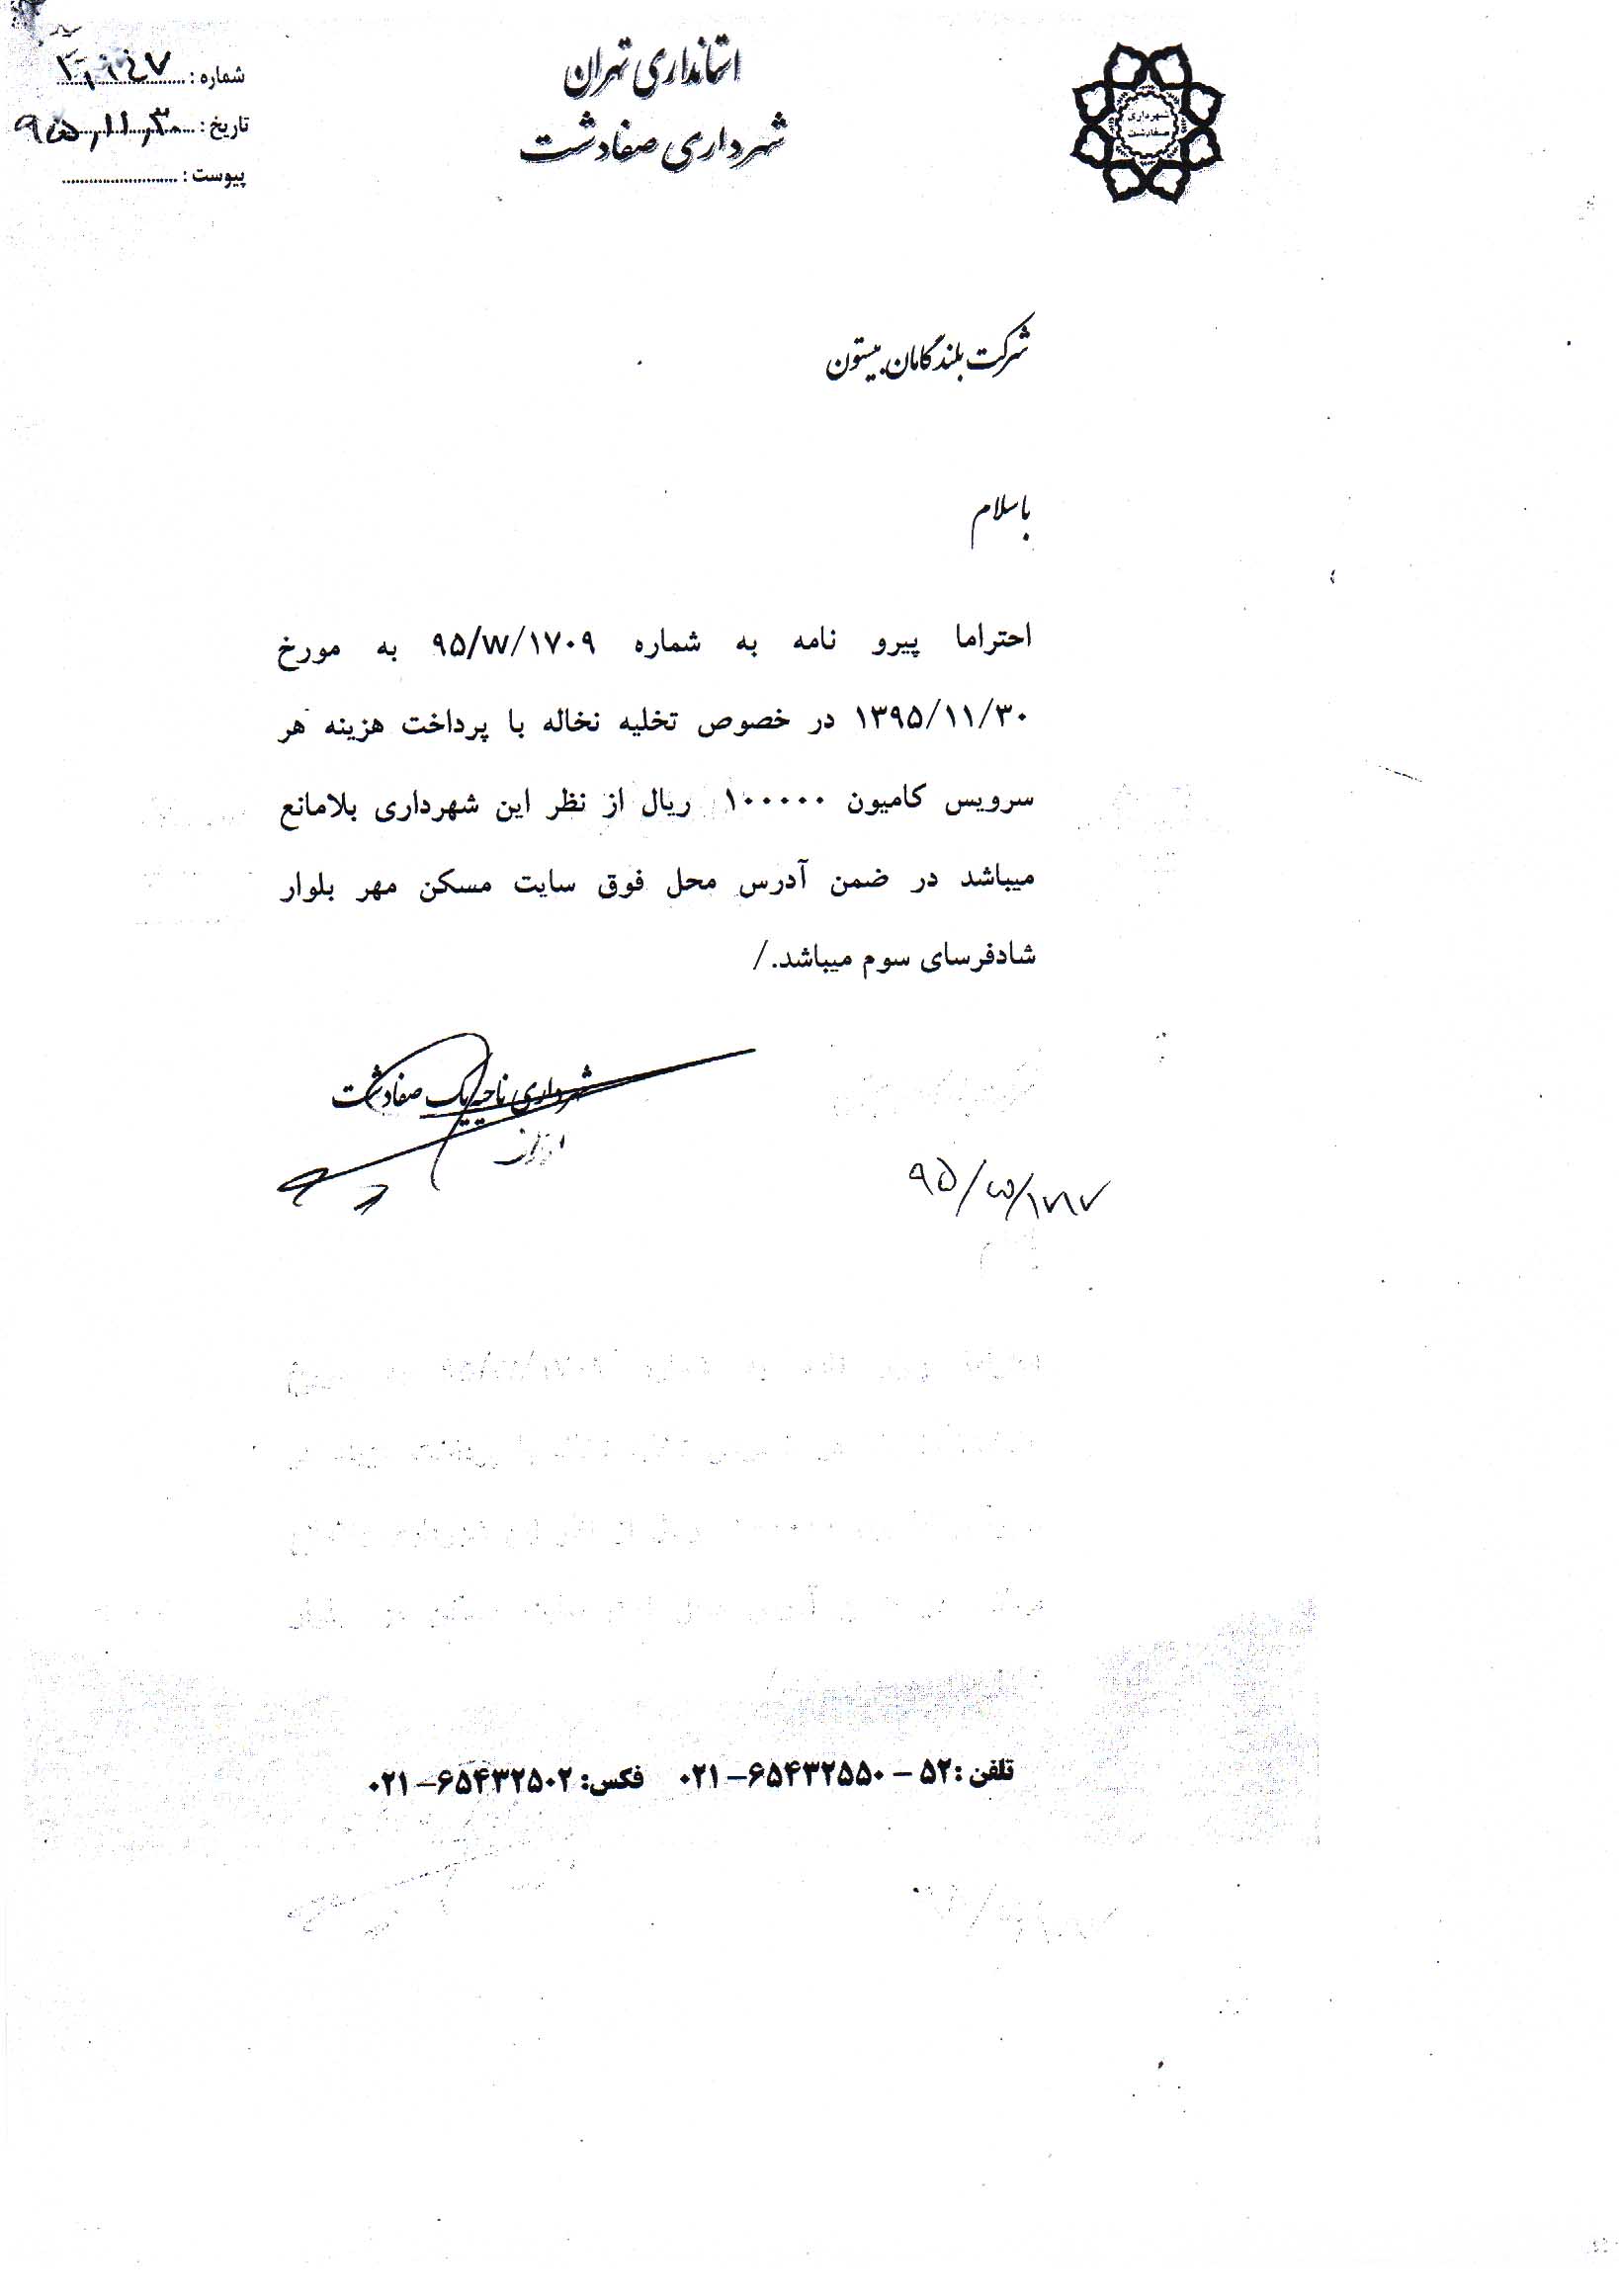 استانداری تهران
شهرداری صفادشت
شهرداری
صفادشت
شماره :
تاریخ : ۹۵,۱۱,۳۰
پیوست :
شرکت بلندگامان بیستون
باسلام
احتراما پیرو نامه به شماره ۹۵/W/۱۷۰۹ به مورخ
۱۳۹۵/۱۱/۳۰ در خصوص تخلیه نخاله با پرداخت هزینه هر
سرویس کامیون ۱۰۰۰۰۰ ریال از نظر این شهرداری بلامانع
میباشد در ضمن آدرس محل فوق سایت مسکن مهر بلوار
شادفرسای سوم میباشد./
شهرداری ناحیه یک صفادشت
تلفن :۵۲ – ۶۵۴۳۲۵۵۰–۰۲۱ فکس: ۶۵۴۳۲۵۰۲–۰۲۱